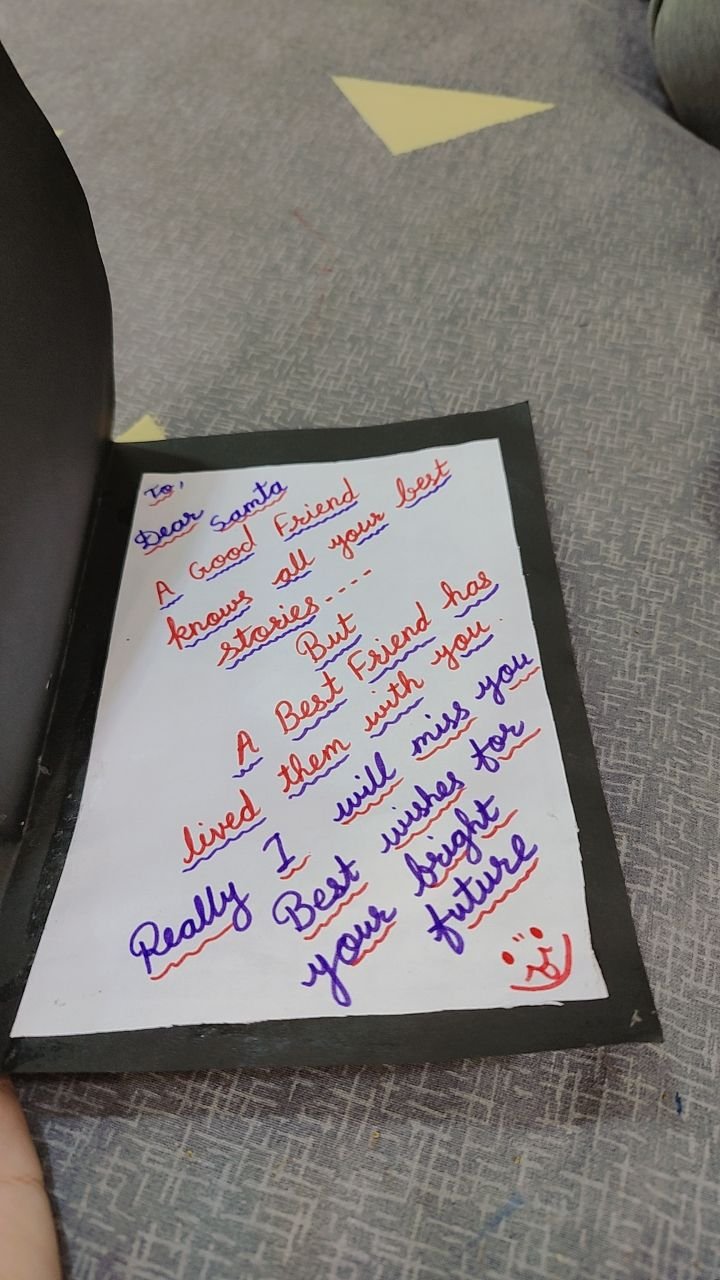 To,
Dear Samta
A Good Friend
knows all your best
stories----
But
A Best Friend has
lived them with you.
Really I will miss you
Best wishes for
your bright
future